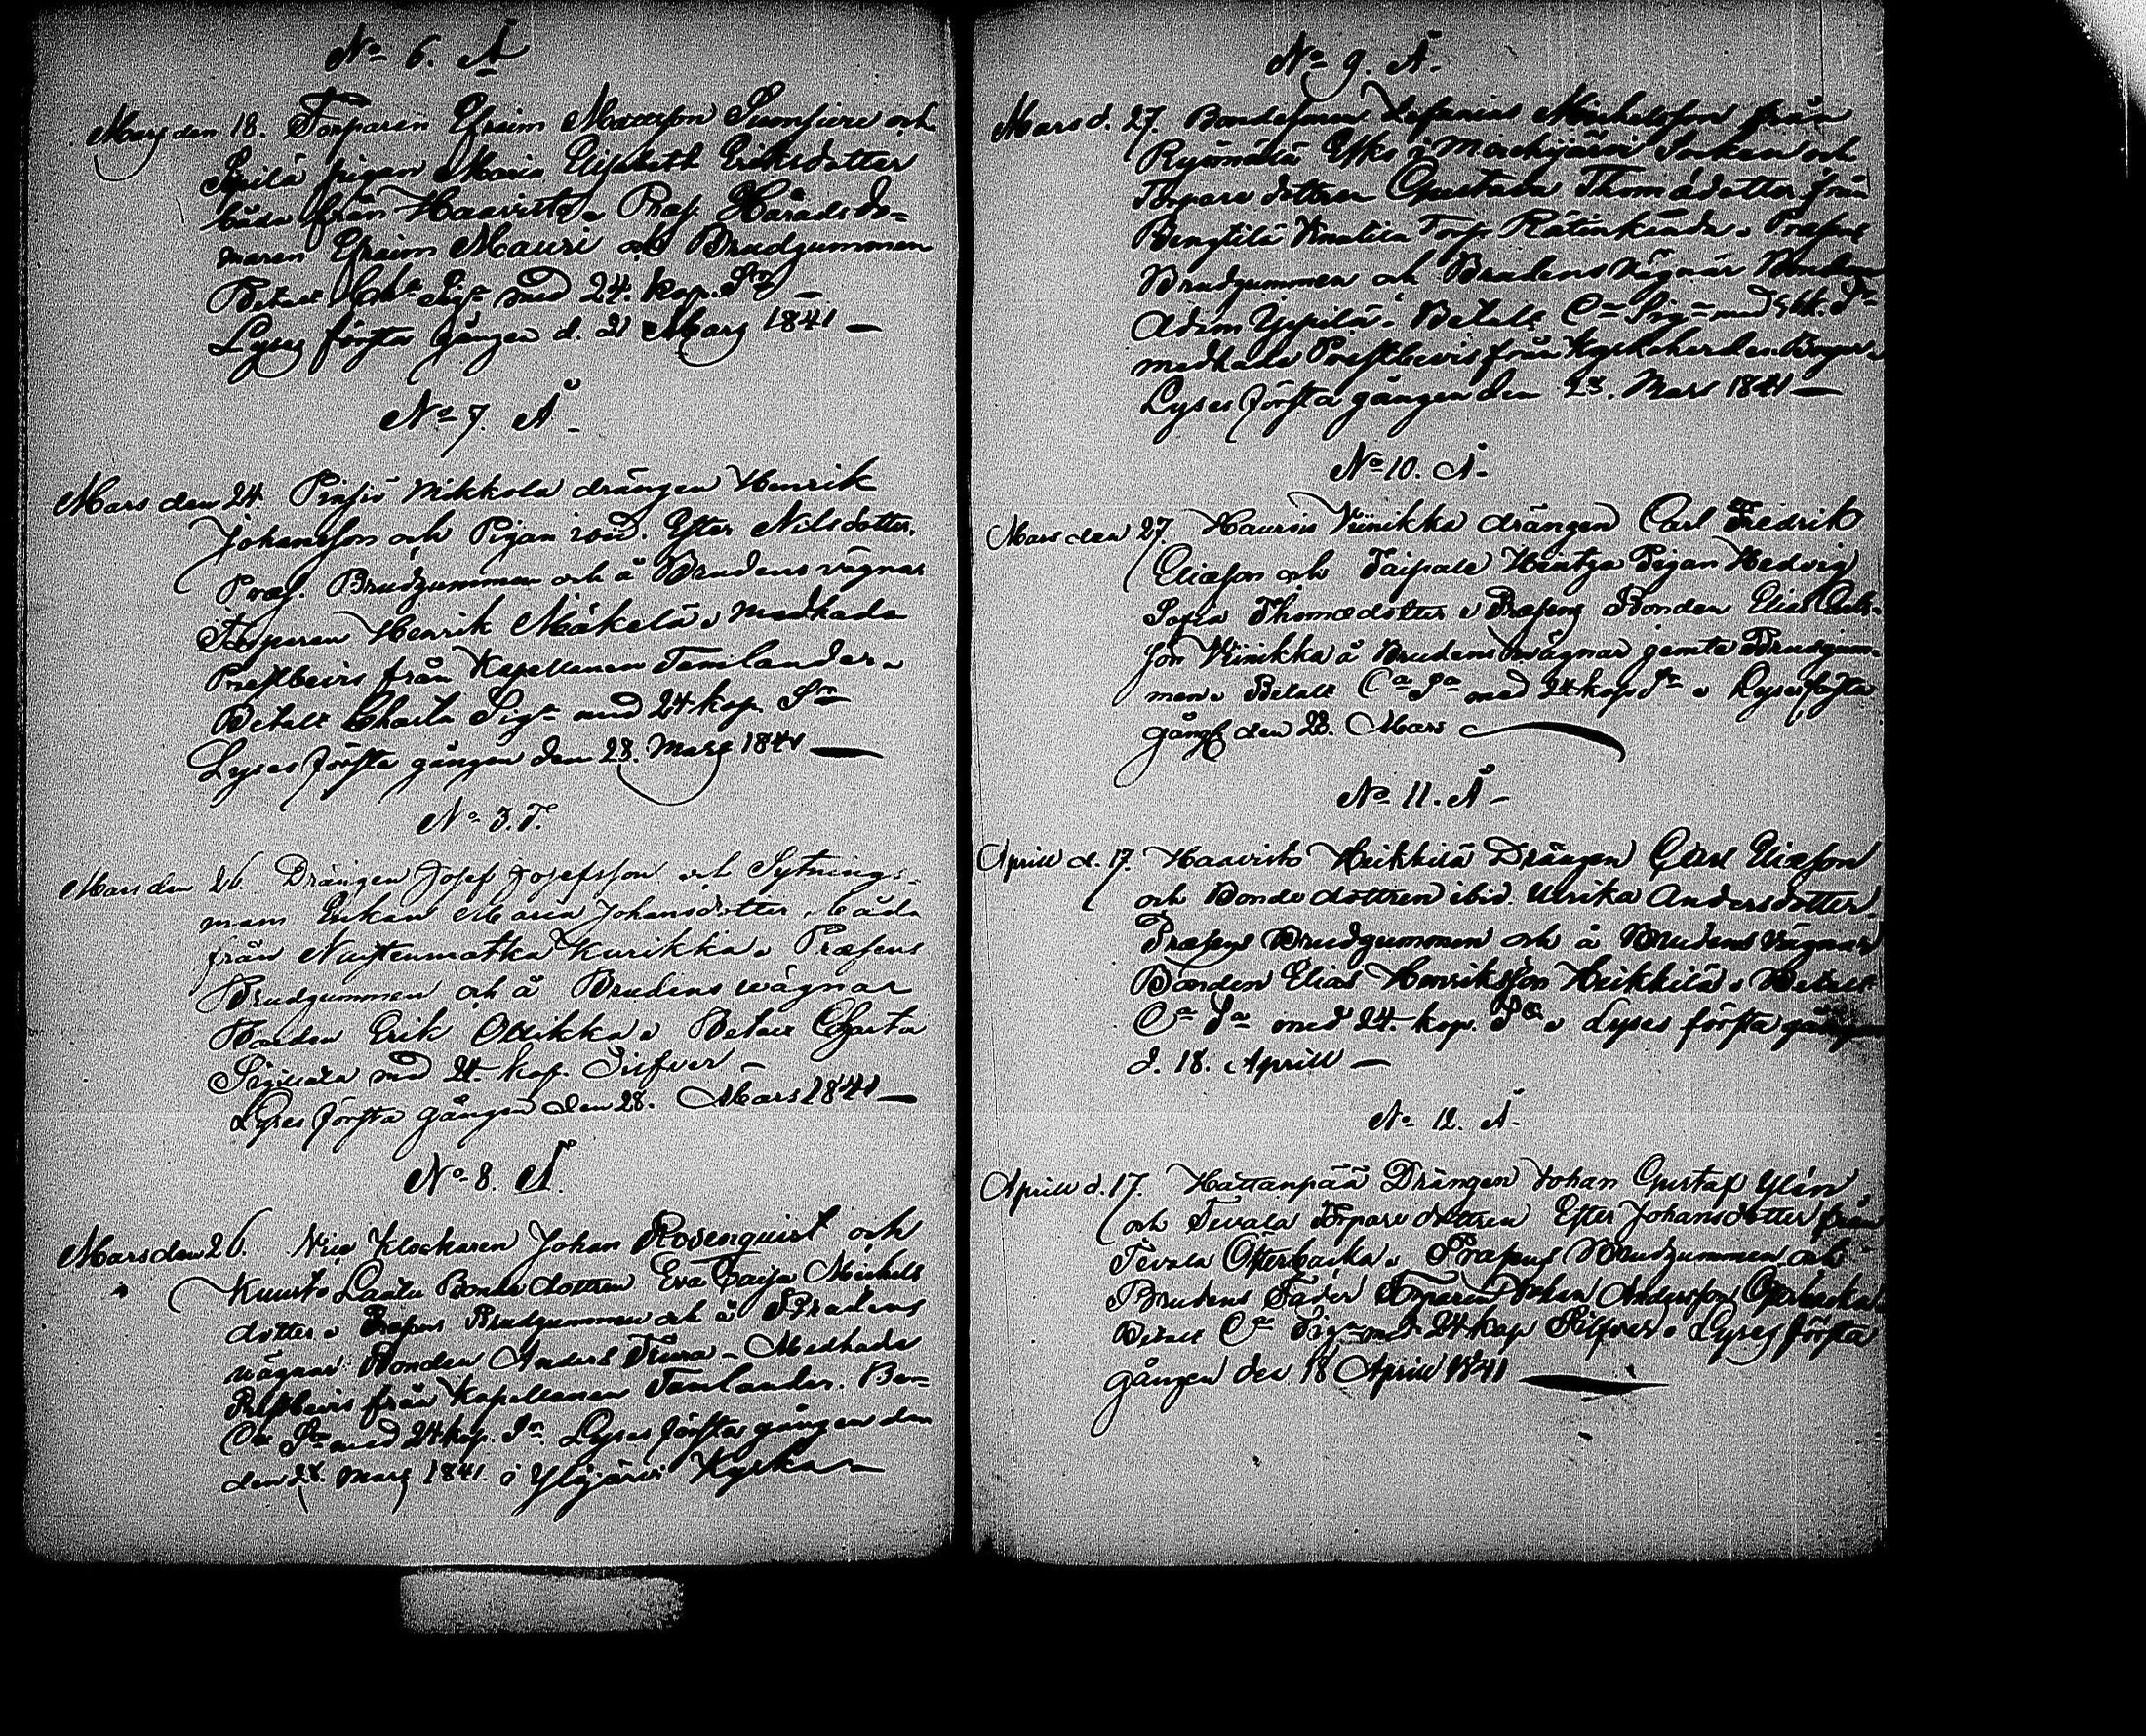 No 6. Å
Mars den 18. Torparen Efraim Mattsson Suonsivu och
pigan Maria Elisabeth Eriksdotter
båda från Haavisto. Præs. Härads do=
maren Efraim Mauri och Brudgummen
Betalt Cha Siga med 24. kop. Sr
Lyses första gången d. 21 Mars 1841 —
No 7. Å
Mars den 24. Pinsiö Mikkola drängen Henrik
Johansson och Pigan ibid. Ester Nilsdotter.
Præs. Brudgummen och å Brudens vägnar
Torparen Henrik Mäkelä, medhade
Prestbevis från Kapellanen Temlander.
Betalt Charta Siga med 24 kop. Sr
Lyses första gången den 28. Mars 1841 —
No 3. T.
Mars den 26. Drängen Josef Josefsson och Sytnings-
mans Enkan Maria Johansdotter, båda
från Kurikka. Præsens
Brudgummen och å Brudens wägnar
Bonden Erik Ollikka. Betalt Charta
Sigillata med 24. kop. Silfver —
Lyses första gången den 28. Mars 1841 —
No 8. Å.
Mars den 26. Vice Klockaren Johan Rosenquist och
Kuusto Laatu Bonde dottren Eva Caisa Michels
dotter. Præsens Brudgummen och å Brudens
vägnar Bonden Anders — Medhade
Prestbevis från Kapellanen Temlander. Be=
Ca Sa med 24 kop. Sr. Lyses första gången den
den 28. Mars 1841. i Ylöjärvi Kyrka —
No 9. Å.
Mars d. 27. Bondesonen Zefanias Michelsson från
i Socken och
Torpare dottren Gustava Thomædotter från
Bengtilä Torp Rätinkändä. Præsens
Brudgummen och Brudens vägnar Bonden
Adam Yppilä. Betalt Ca Siga med Sr
medhade Prestbevis från Kyrkoherden
Lyses första gången den 28. Mars 1841 —
No 10. Å.
Mars den 27. Viinikka drängen Carl Fredrik
Eliæsson och Taipale Hentza Pigan Hedvig
Sofia Thomædotter. Præsens Bonden Elias
son Viinikka å Brudens wägnar jemte Brudgum-
men. Betalt Ca Sa med 24 kop Sr. Lyses första
gång den 28. Mars
No 11. Å —
Aprill d. 17. Haavisto Heikkilä Drängen Carl Eliæsson
och Bonde dottren ibid. Ulrika Andersdotter.
Præsens Brudgummen och å Brudens vägnar
Bonden Elias Henriksson Heikkilä. Betalt
Ca Sa med 24. kop. Sr. Lyses första gången
d. 18. Aprill —
No 12. Å.
Aprill d. 17. Hattanpää Drängen Johan Gustaf Ylén
och Tevala Torpare dottren Ester Johansdotter från
Tevala Österbacka. Præsens Brudgummen och
Brudens Fader Torparen Johan Andersson Österbacka
Betalt Ca Siga med 24 kop Silfver. Lyses första
gången den 18 Aprill 1841